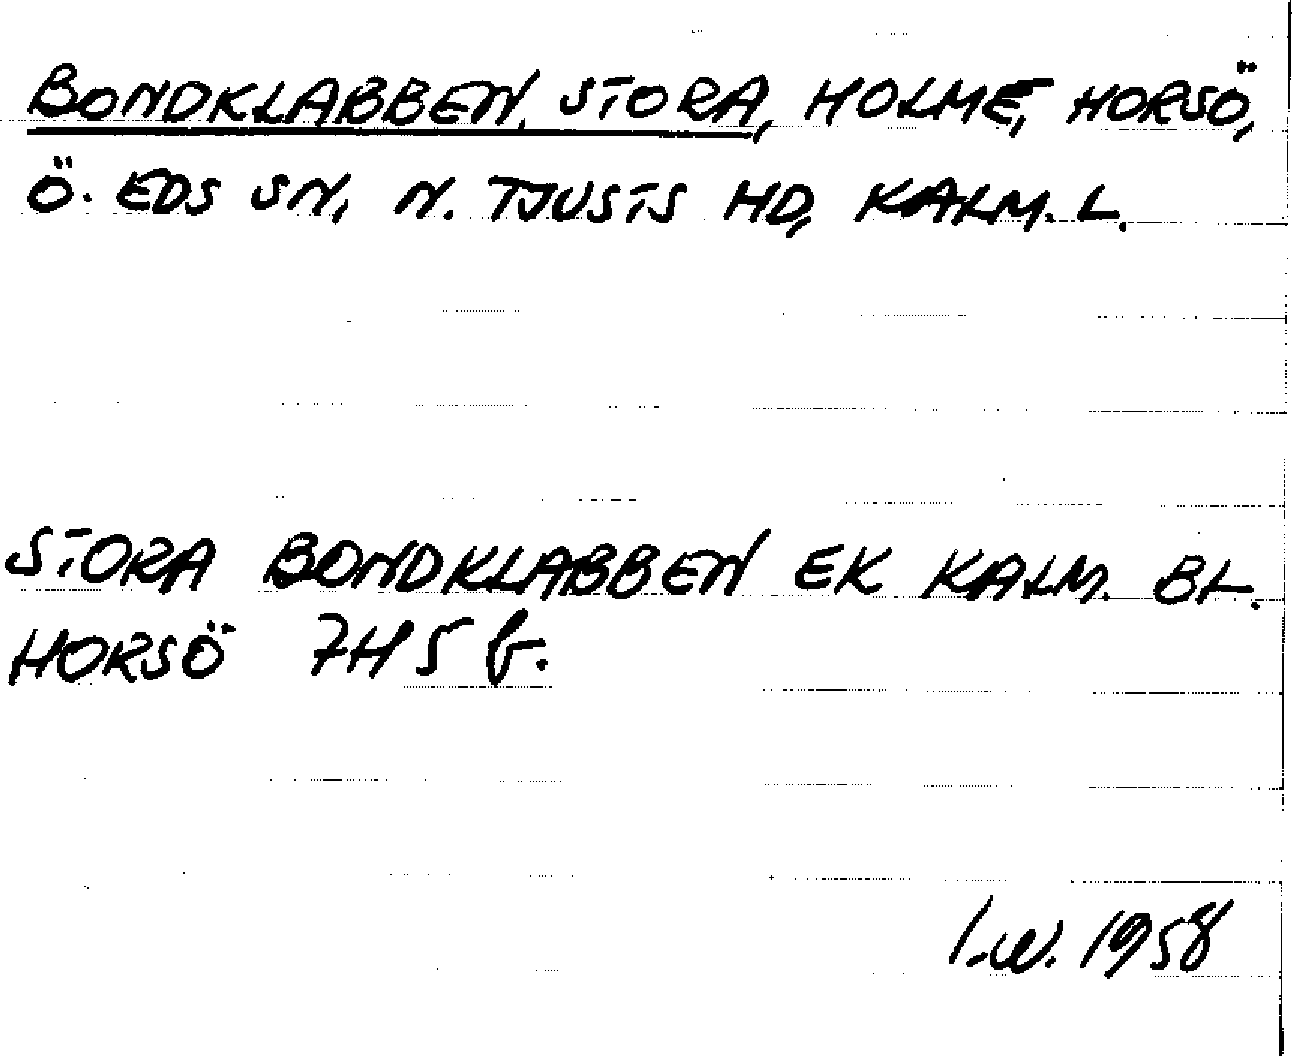 BONDKLABBEN, STORA, HOLME, HORSÖ,
Ö. EDS SN, N. TJUSTS HD, KALM. L.
STORA BONDKLABBEN EK KALM. BL.
HORSÖ 7H5 f.
I.W. 1958